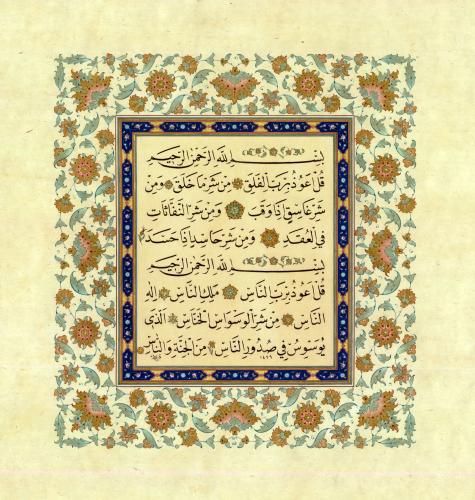 بسم الله الرحمن الرحيم
قل اعوذ برب الفلق من شر ما خلق ومن
شر غاسق اذا وقب ومن شر النفاثات
في العقد ومن شر حاسد اذا حسد
بسم الله الرحمن الرحيم
قل اعوذ برب الناس ملك الناس اله
الناس من شر الوسواس الخناس الذى
يوسوس في صدور الناس من الجنة والناس